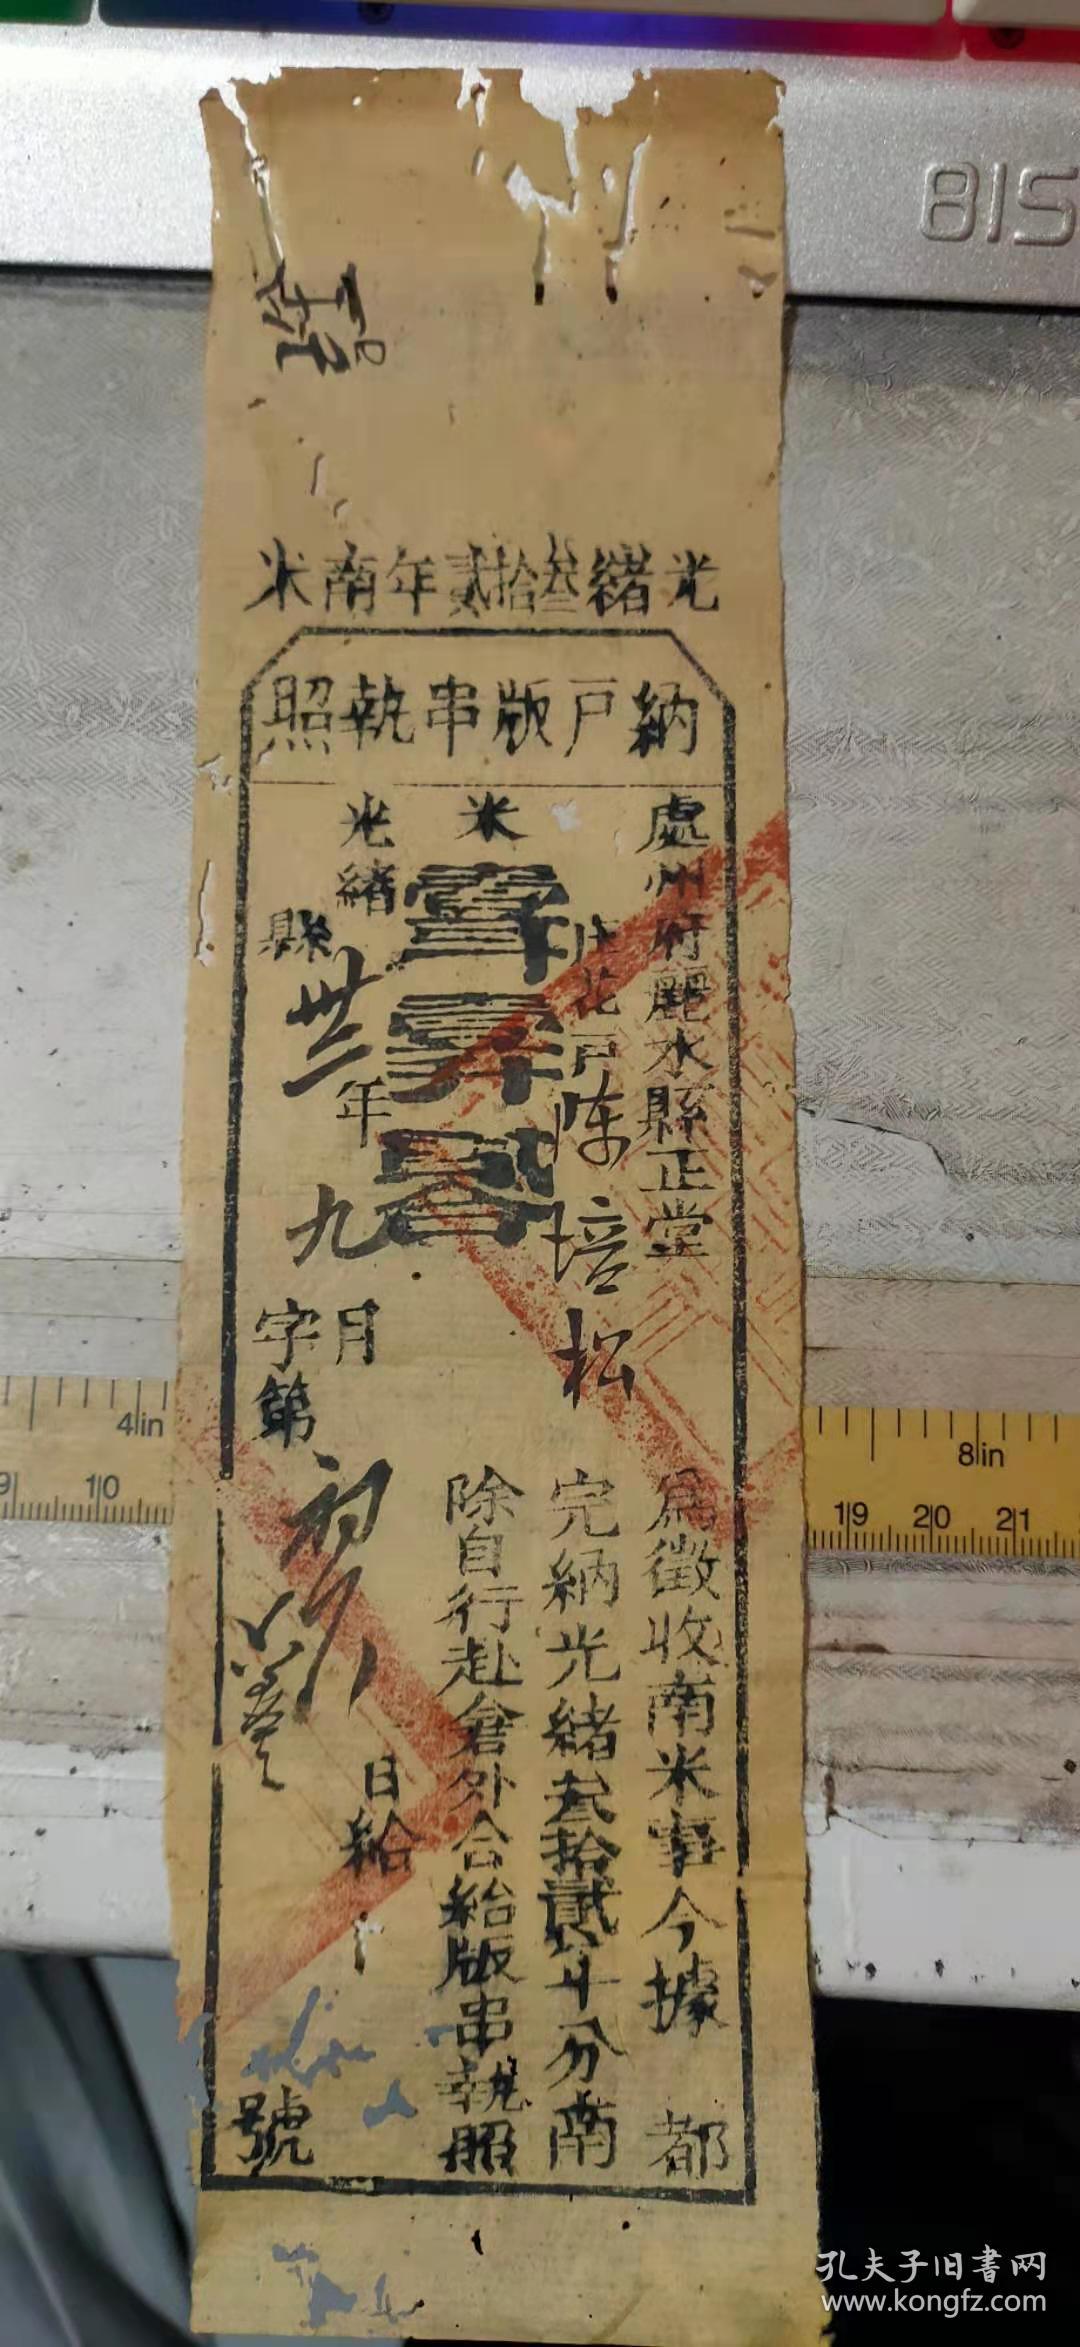 光緒叁拾貳年南米
納戶版串執照
處州府麗水縣正堂 為徵收南米事今據 都
庄花戶陈培松 完納光緒叁拾貳年分南
米 除自行赴倉外合給版串執照
光緒卅二年九月初 日給
縣 字第 號
815
4in
8in
9 10
19 20 21
孔夫子旧書网
www.kongfz.com